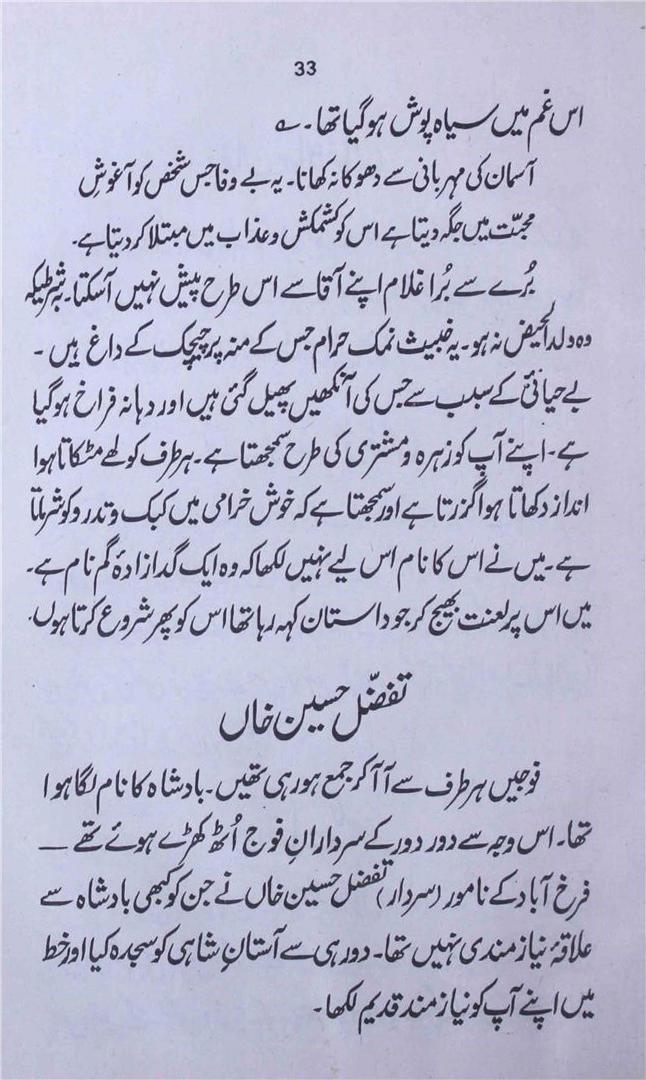 33
اس غم میں سیاہ پوش ہوگیا تھا۔ ؎
آسمان کی مہربانی سے دھوکا نہ کھانا۔ یہ بے وفا جس شخص کو آغوشِ
محبّت میں جگہ دیتا ہے اس کو کشمکش و عذاب میں مبتلا کر دیتا ہے۔
بُرے سے بُرا غلام اپنے آقا سے اس طرح پیش نہیں آسکتا۔ بشرطیکہ
وہ ولدالحیض نہ ہو۔ یہ خبیث نمک حرام جس کے منہ پر چیچک کے داغ ہیں ۔
بے حیائی کے سبب سے جس کی آنکھیں پھیل گئی ہیں اور دہانہ فراخ ہوگیا
ہے۔ اپنے آپ کو زہرہ و مشتری کی طرح سمجھتا ہے۔ ہر طرف کولھے مٹکاتا ہوا
انداز دکھاتا ہوا گزرتا ہے اور سمجھتا ہے کہ خوش خرامی میں کبک و تدرو کو شرماتا
ہے۔ میں نے اس کا نام اس لیے نہیں لکھا کہ وہ ایک گدازادۂ گم نام ہے۔
میں اس پر لعنت بھیج کر جو داستان کہہ رہا تھا اس کو پھر شروع کرتا ہوں۔
تفضّل حسین خاں
فوجیں ہر طرف سے آ آ کر جمع ہو رہی تھیں۔ بادشاہ کا نام لگا ہوا
تھا۔ اس وجہ سے دور دور کے سردارانِ فوج اُٹھ کھڑے ہوئے تھے ــ
فرخ آباد کے نامور (سردار) تفضل حسین خاں نے جن کو کبھی بادشاہ سے
علاقۂ نیاز مندی نہیں تھا۔ دور ہی سے آستانِ شاہی کو سجدہ کیا اور خط
میں اپنے آپ کو نیاز مند قدیم لکھا۔